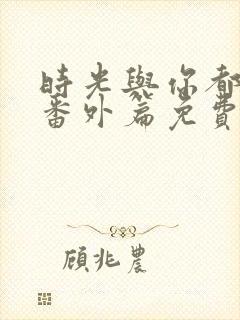 時光與你都
番外篇免費
顧兆農